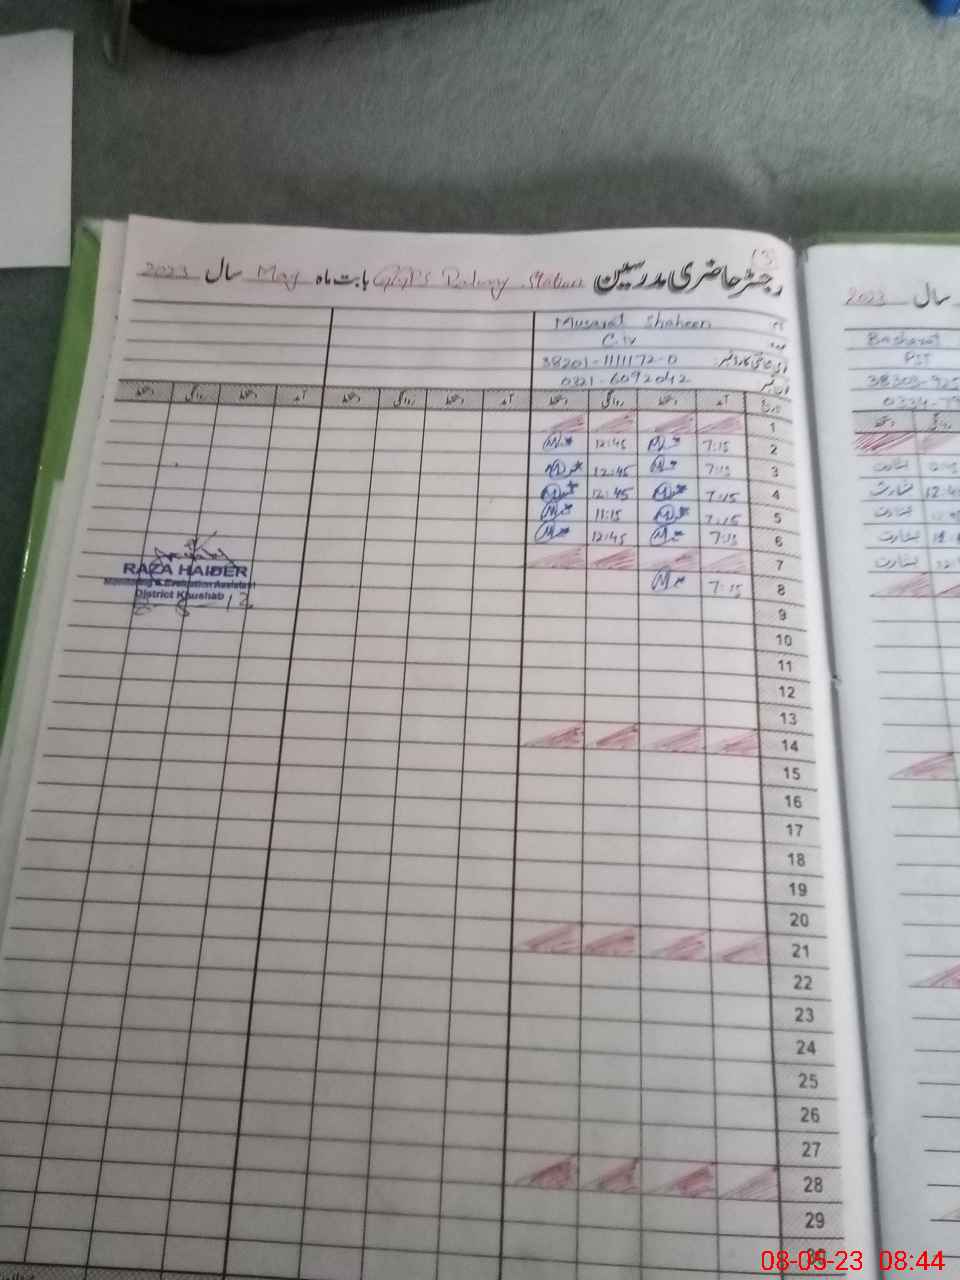 (3)
رجسٹر حاضری مدرسین GGPS Railway Station بابت ماہ May سال 2023
نام Musarat Shaheen
عہدہ
شناختی کارڈ نمبر: 38201-1111172-0
فون نمبر 0321-6092042
تاریخ آمد دستخط روانگی دستخط آمد دستخط روانگی دستخط آمد دستخط روانگی دستخط
1
2 7:15 12:45
3 7:15 12:45
4 7:15 12:45
5 7:15 11:15
6 7:15 12:45
7
8 7:15
9
10
11
12
13
14
15
16
17
18
19
20
21
22
23
24
25
26
27
28
29
30
RAZA HAIDER
Monitoring & Evaluation Assistant
District Khushab
سال 2023
Basharat
PST
38303-925
0334-77
روانگی دستخط
بشارت
12:45 بشارت
بشارت
بشارت
بشارت
08-05-23 08:44